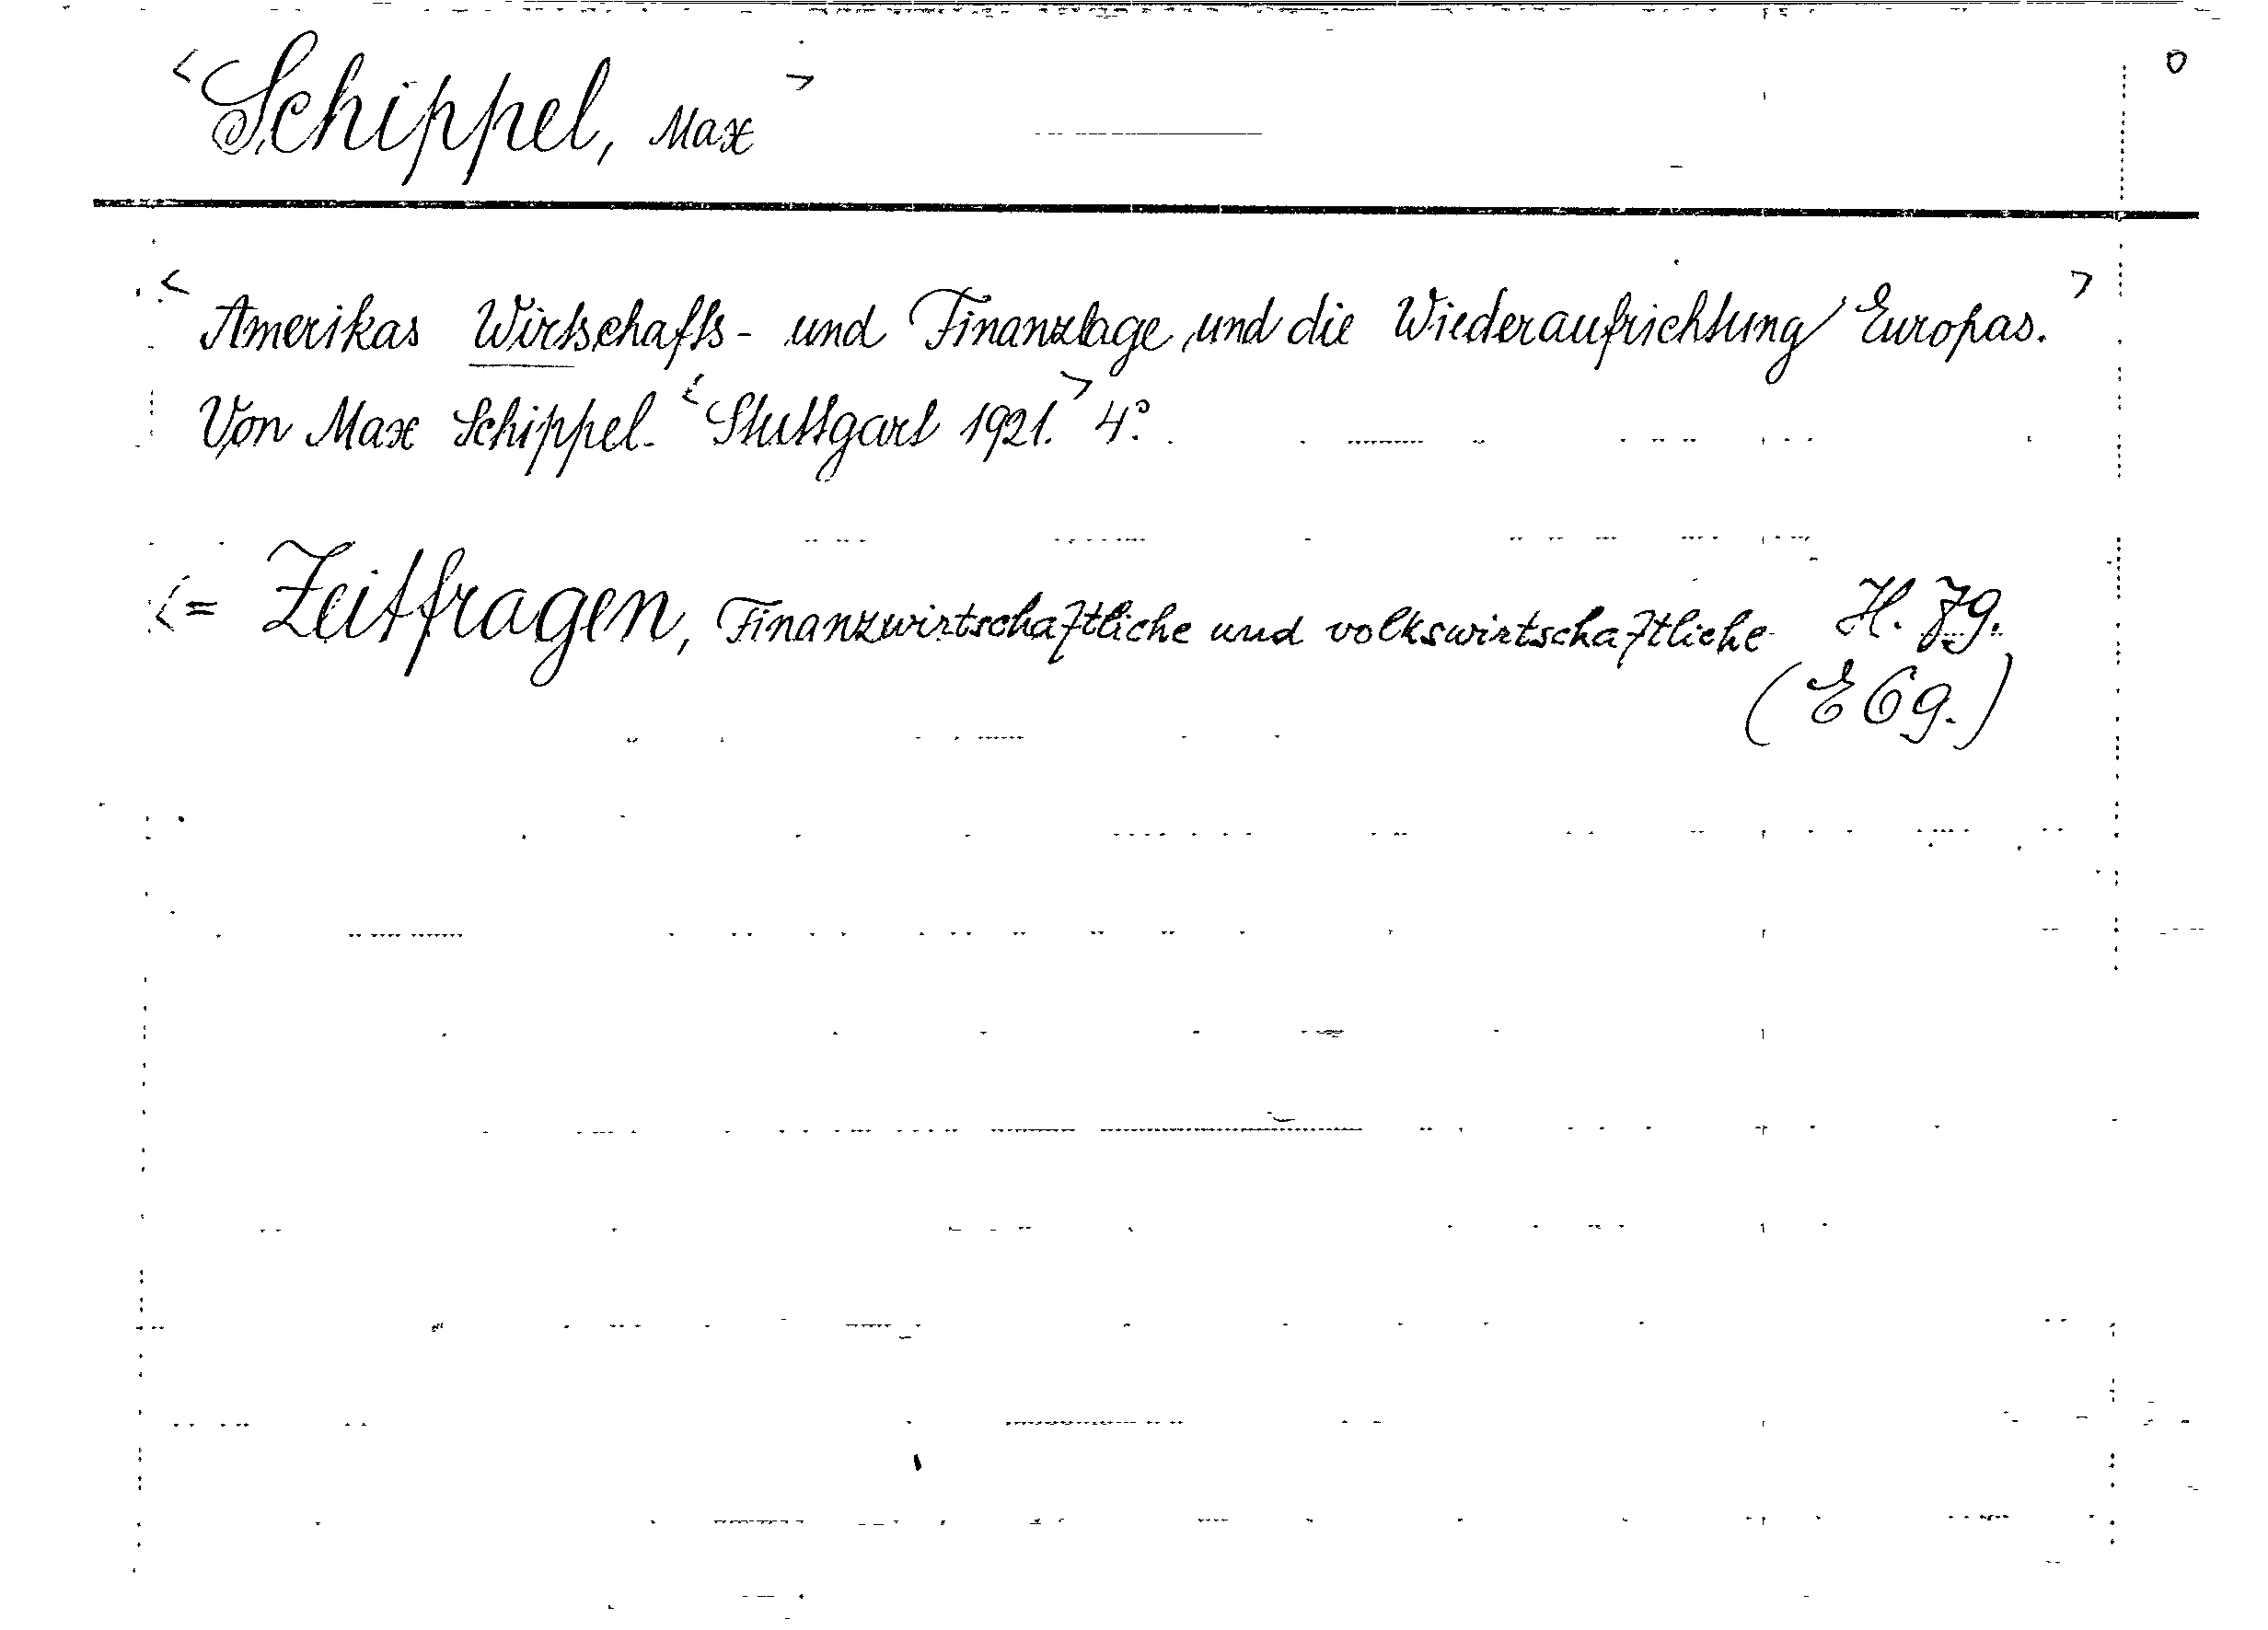 <Schippel, Max> 0
<Amerikas Wirtschafts- und Finanzlage und die Wiederaufrichtung Europas.>
Von Max Schippel. <Stuttgart 1921.> 4°.
<= Zeitfragen, Finanzwirtschaftliche und volkswirtschaftliche H. 79.
(E 69.)